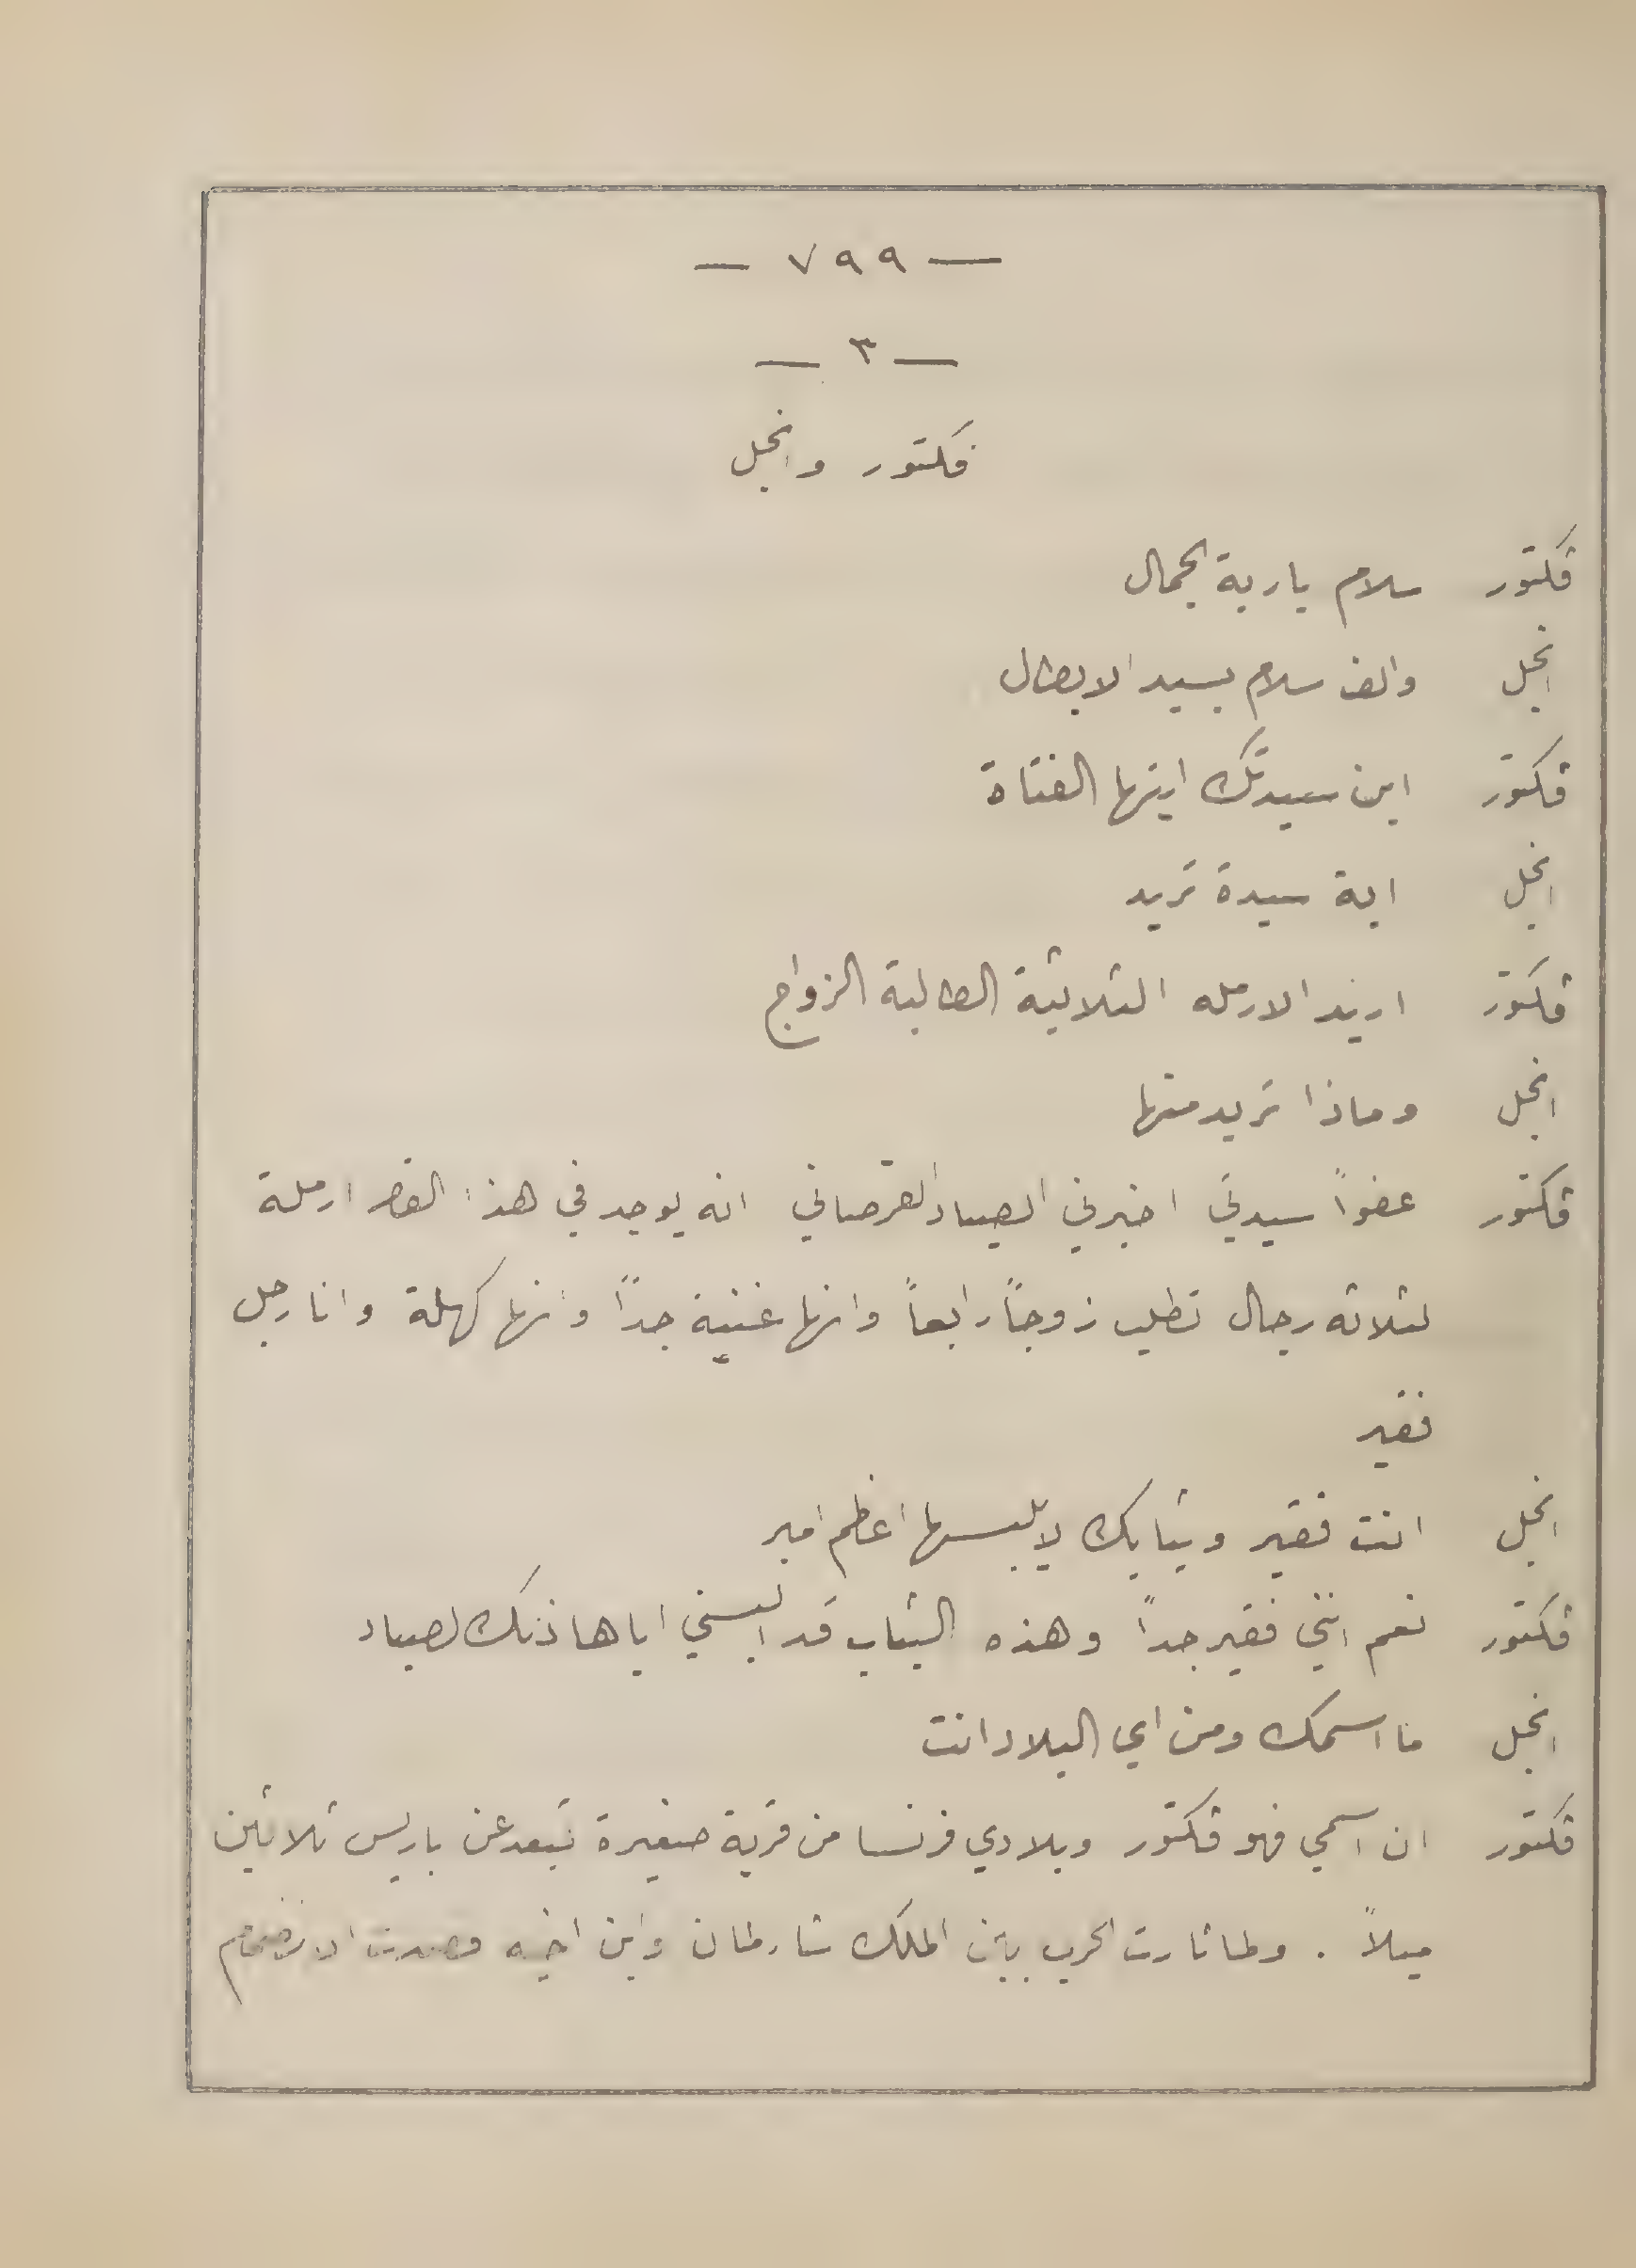 — ٧٩٩ —
— ٣ —
فكتور وانجل
فكتور سلام ياربة الجمال
انجل والف سلام لسيد الابطال
فكتور اين سيدتك ايتها الفتاة
انجل اية سيدة تريد
فكتور اريد الارمله الثلاثية الطالبة الزواج
انجل وماذا تريد منها
فكتور عفواً سيدتي اخبرني الصياد القرصاني انه يوجد في هذا القصر ارملة
لثلاثه رجال تطلب زوجاً رابعاً وانها غنية جداً وانها كهلة وانا رجل
فقير
انجل انت فقير وثيابك لا يلبسها اعظم امير
فكتور نعم انني فقير جداً وهذه الثياب قد البسني اياها ذلك الصياد
انجل ما اسمك ومن اي البلاد انت
فكتور ان اسمي فهو فكتور وبلادي فرنسا من قرية صغيرة تبعد عن باريس ثلاثين
ميلاً . ولما ثارت الحرب بين الملك شارلمان وابن اخيه قصدت الانضمام